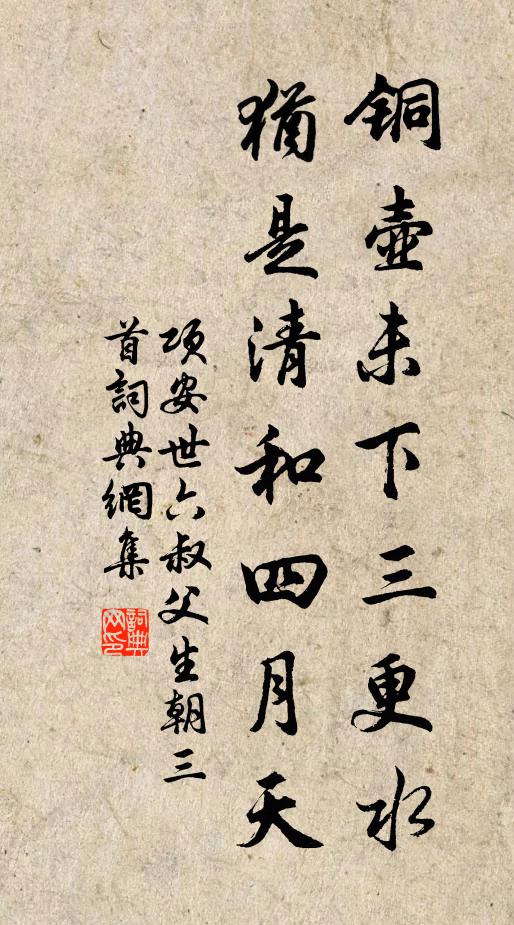 銅壺未下三更水
猶是清和四月天
項安世六叔父生朝三
首詞典網集
詞典
网印